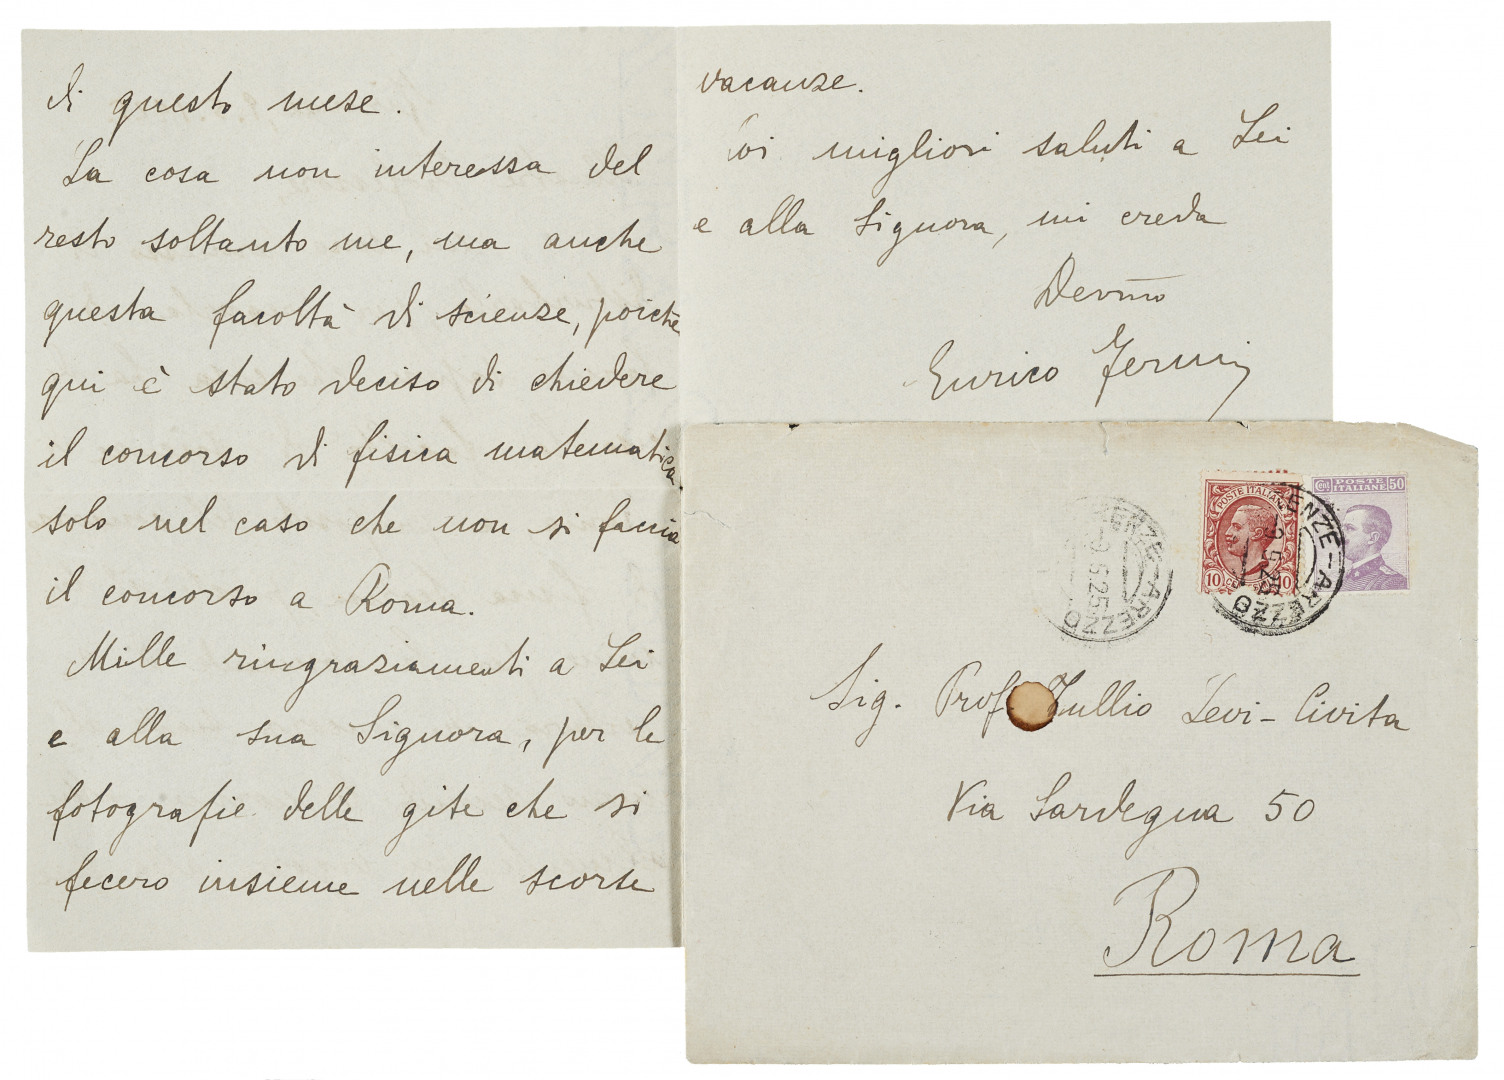 di questo mese.
La cosa non interessa del
resto soltanto me, ma anche
questa facoltà di scienze, poichè
qui è stato deciso di chiedere
il concorso di fisica matematica
solo nel caso che non si faccia
il concorso a Roma.
Mille ringraziamenti a Lei
e alla sua Signora, per le
fotografie delle gite che si
fecero insieme nelle scorse
vacanze.
Coi migliori saluti a Lei
e alla Signora, mi creda
Devmo
Enrico Fermi
POSTE ITALIANE
10 10
Cent POSTE 50
ITALIANE
ENZE-AREZZO
-9.5.25
ENZE-AREZZO
Sig. Prof. Tullio Levi-Civita
Via Sardegna 50
Roma